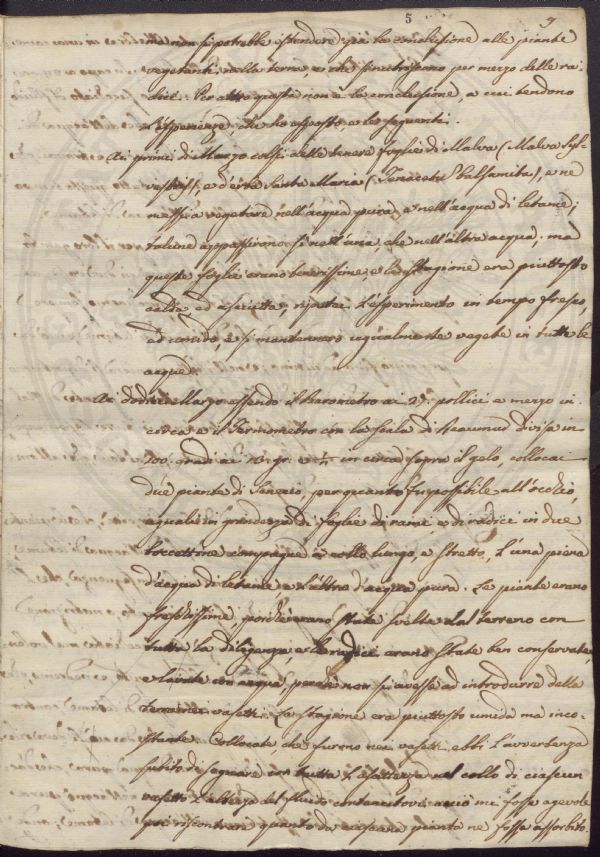 5 5
me non si potrebbe estendere già la conclusione alle piante
vegetanti nella terra, e che si nutriscano per mezzo delle ra-
dici. Per altro questa non è la conclusione, a cui tendono
l'esperienze, che ho esposto, e le seguenti.
Ai primi di Marzo colsi delle tenere foglie di Malva (Malva Syl-
vestris), e d'erba Santa Maria (Tanacetu Balsamita), e ne
messi a vegetare nell'acqua pura, e nell'acqua di letame;
talune appassirono sì nell'una, che nell'altra acqua; ma
queste foglie erano tenerissime, e la Stagione era piuttosto
calda, ed asciutta; ripetei l'esperimento in tempo fresco,
ed umido, e si mantennero ugualmente vegete in tutte le
acque.
Ai dodici Marzo essendo il barometro ai 27 pollici e mezzo in
circa e il Termometro con la Scala di Reaumur divisa in
100 gradi ai 13 gr. e ½ in circa sopra il gelo, collocai
due piante di Senecio, per quanto fu possibile all'occhio,
eguali in grandezza di foglie di rami, e di radici in due
boccettine a collo lungo, e stretto, l'una piena
d'acqua di letame e l'altra d'acqua pura. Le piante erano
freschissime poiché erano state svelte dal terreno con
tutta la diligenza, e le radici erano state ben conservate,
e lavate con acqua, perché non si avesse ad introdurre della
terra nei vasetti. La Stagione era piuttosto umida ma inco-
stante. Collocate che furono nei vasetti ebbi l'avvertenza
subito di segnare con tutta l'esattezza nel collo di ciascun
vasetto l'altezza del fluido contenutovi acciò mi fosse agevole
poi riscontrare quanto da ciascuna pianta ne fosse assorbito.